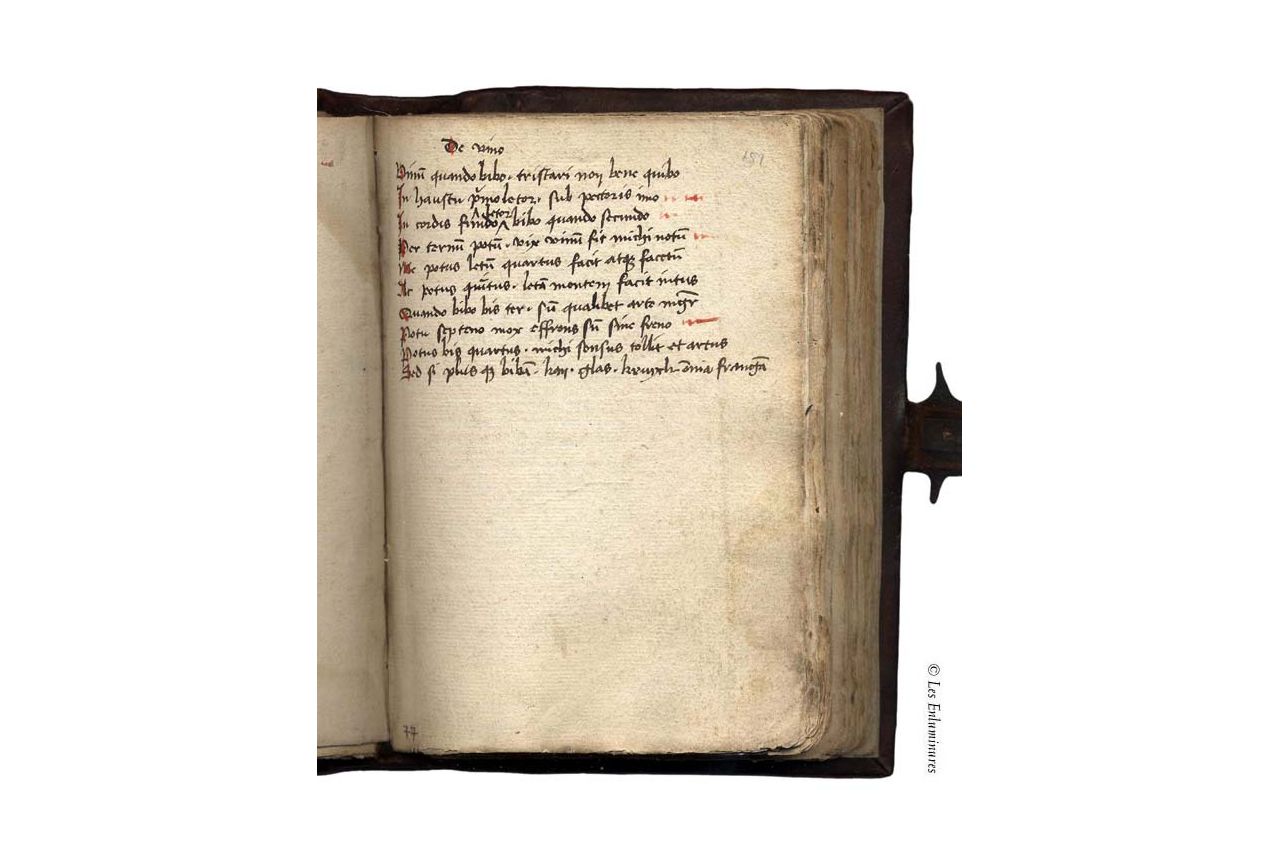 De vino
151
Vinū quando bibo · tristari non bene quibo
In haustu pͥmo letor · sub pectoris imo
In cordis fundo letor bibo quando secundo
Per ternū potū · vix vinū fit michi notū
Me potus letū quartus facit atqꝫ facetū
Ac potus quītus · letā montem facit intus
Quando bibo bis ter · sū qualibet arte magr̄
Potu septeno mox effrons sū sine freno
Potus bis quartus · michi sensus tollit et artus
Sed si plus qꝫ bibā · kan · glas · om̄ia frangā
77
© Les Enluminures